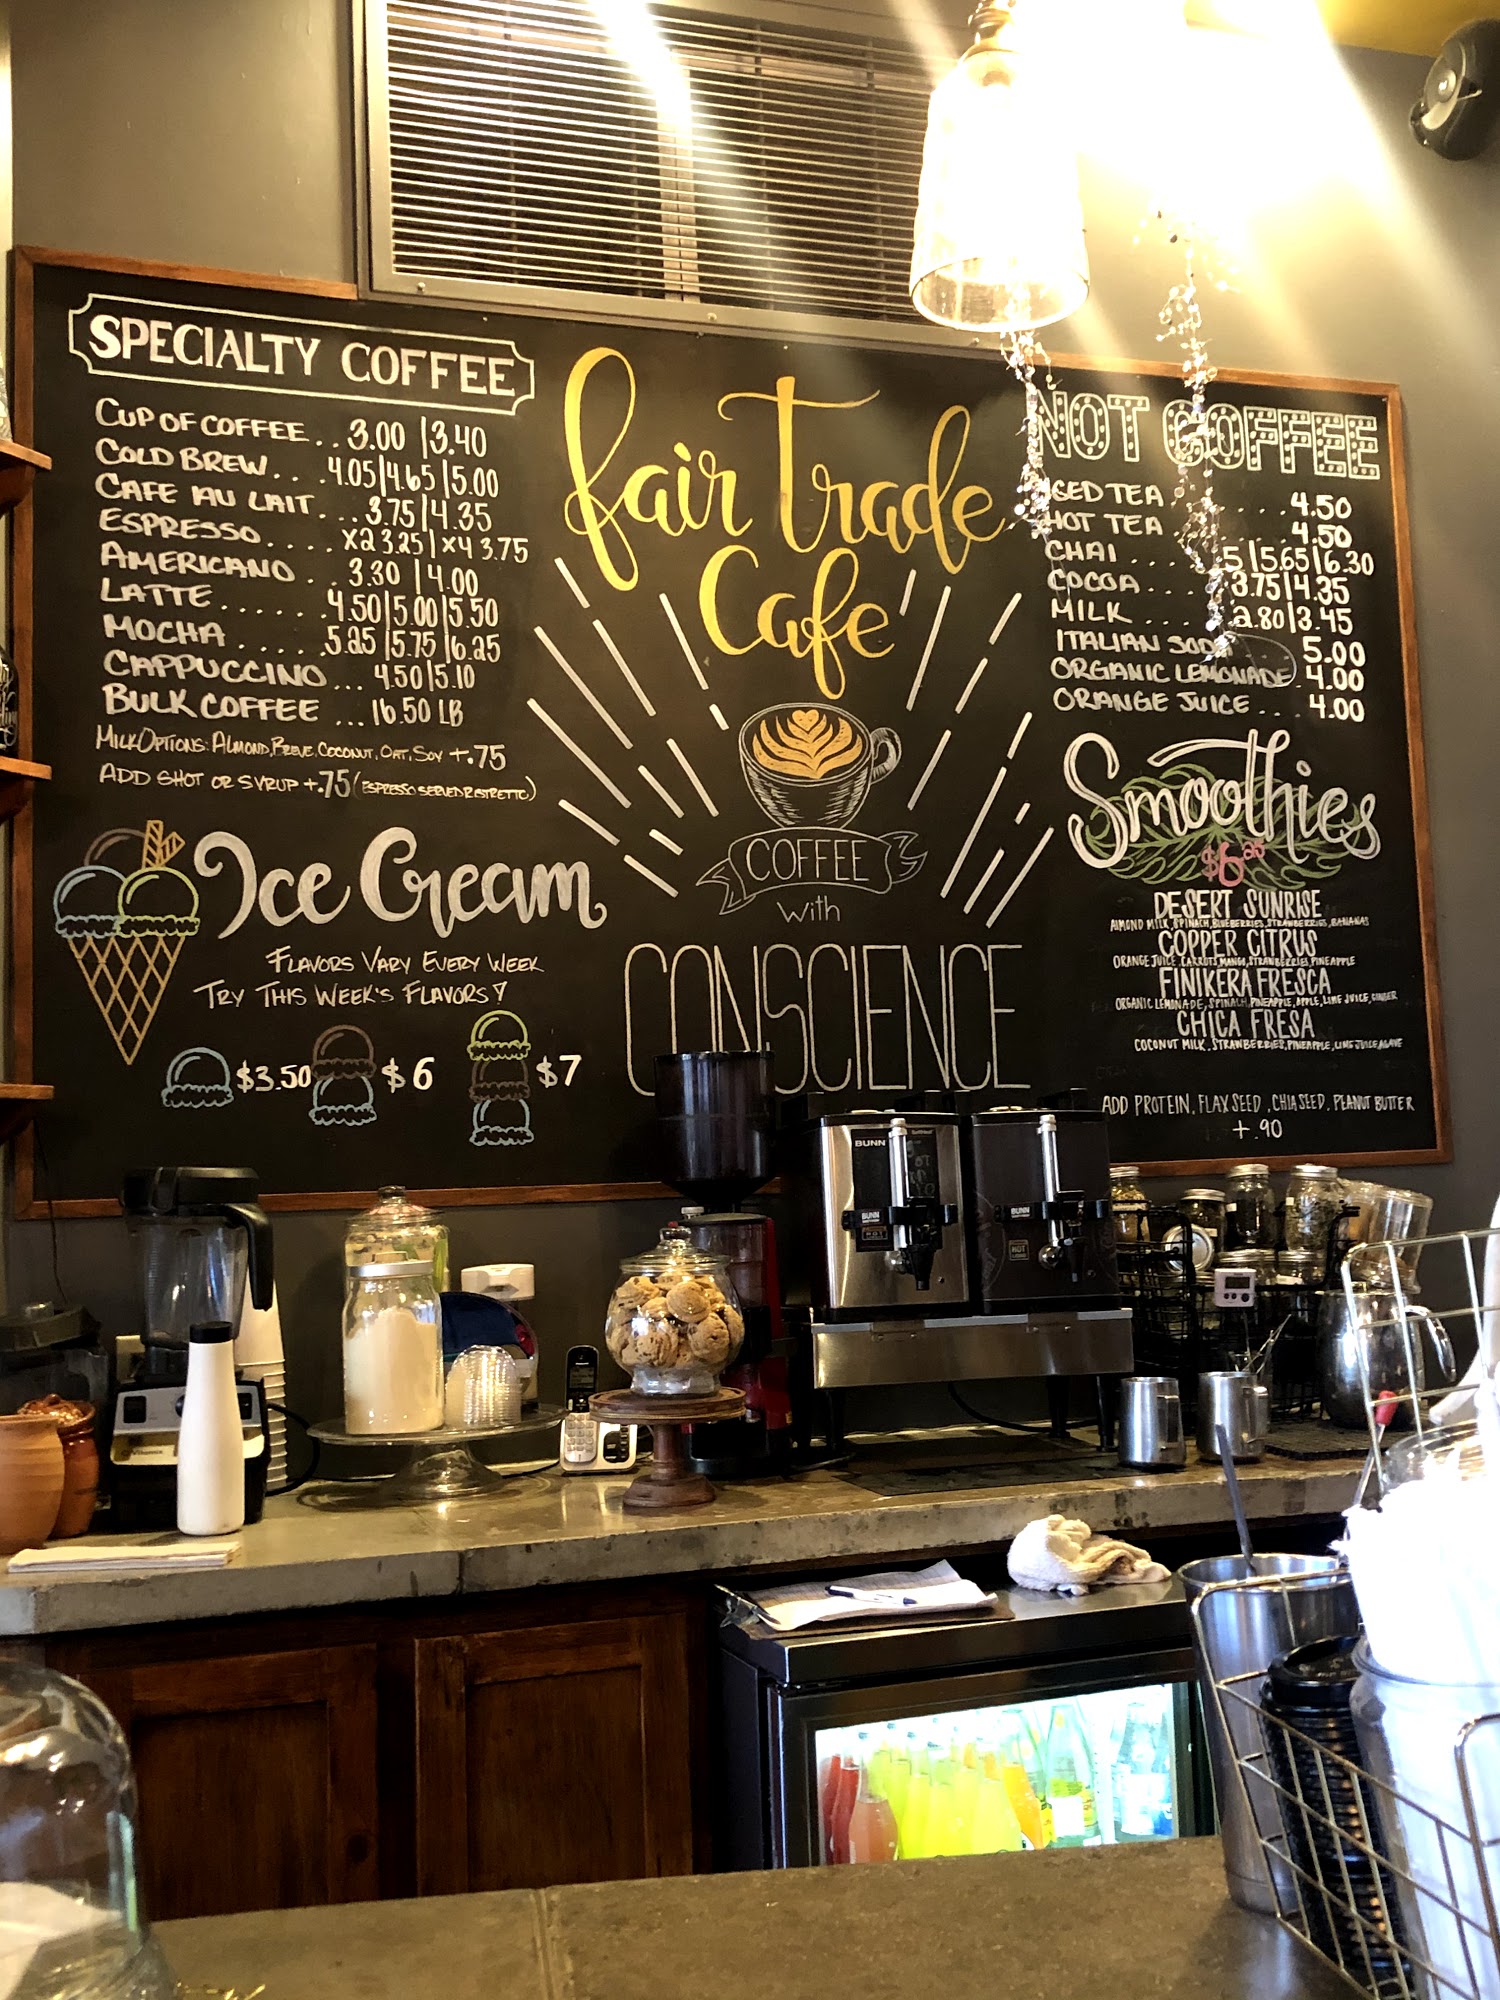 SPECIALTY COFFEE
CUP OF COFFEE.. 3.00 | 3.40
COLD BREW... 4.05|4.65|5.00
CAFE AU LAIT... 3.75|4.35
ESPRESSO.... x2 3.25 | x4 3.75
AMERICANO .. 3.30 | 4.00
LATTE...... 4.50|5.00|5.50
MOCHA ..... 5.25|5.75|6.25
CAPPUCCINO... 4.50|5.10
BULK COFFEE ... 16.50 LB
MILK OPTIONS: ALMOND, BREVE, COCONUT, OAT, SOY +.75
ADD SHOT OR SYRUP +.75 (ESPRESSO SERVED RISTRETTO)
Ice Cream
FLAVORS VARY EVERY WEEK
TRY THIS WEEK'S FLAVORS!
$3.50 $6 $7
fair trade
Cafe
COFFEE
with
CONSCIENCE
NOT COFFEE
ICED TEA ..... 4.50
HOT TEA ..... 4.50
CHAI .... 5|5.65|6.30
COCOA .... 3.75|4.35
MILK .... 2.80|3.45
ITALIAN SODA 5.00
ORGANIC LEMONADE. 4.00
ORANGE JUICE... 4.00
Smoothies
$6.25
DESERT SUNRISE
ALMOND MILK, SPINACH, BLUEBERRIES, STRAWBERRIES, BANANAS
COPPER CITRUS
ORANGE JUICE, CARROTS, MANGO, STRAWBERRIES, PINEAPPLE
FINIKERA FRESCA
ORGANIC LEMONADE, SPINACH, PINEAPPLE, APPLE, LIME JUICE, GINGER
CHICA FRESA
COCONUT MILK, STRAWBERRIES, PINEAPPLE, LIME JUICE, AGAVE
ADD PROTEIN, FLAX SEED, CHIA SEED, PEANUT BUTTER
+.90
BUNN
BUNN
BUNN
HOT
Vitamix